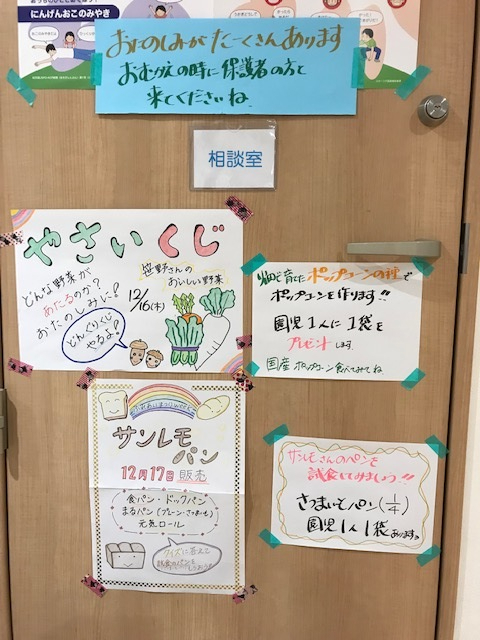 にんげんおこのみやき
おたのしみがたーくさんあります
おむかえの時に保護者の方と
来てくださいね
相談室
やさいくじ
どんな野菜が
あたるのか?
おたのしみに!
12/16(木)
笹野さんの
おいしい野菜
どんぐりくじ
やるよ!
畑で育てたポップコーンの種で
ポップコーンを作ります!!
園児1人に1袋を
プレゼントします
国産ポップコーン食べてみてね
サンレモ
パン
12月17日販売
食パン・ドックパン
まるパン(プレーン・さつまいも)
元気ロール
クイズに答えて
サンレモさんのパンを
試食してみましょう!!
さつまいもパン(1/4)
園児1人1袋あります。